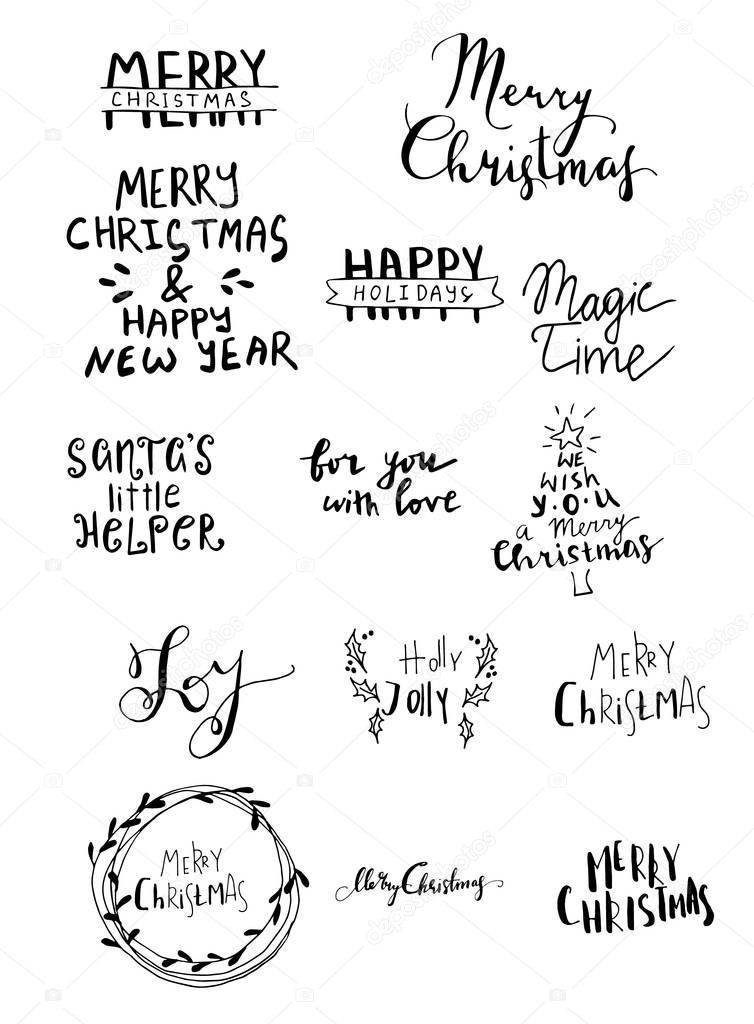 MERRY
CHRISTMAS
MERRY
Merry
Christmas
MERRY
CHRISTMAS
&
HAPPY
NEW YEAR
HAPPY
HOLIDAYS
HAPPY
Magic
Time
SANTA'S
little
HELPER
for you
with love
WE
WISH
Y.O.U
a Merry
Christmas
Joy
Holly
Jolly
MERRY
CHRISTMAS
MERRY
CHRISTMAS
Merry Christmas
MERRY
CHRISTMAS
depositphotos